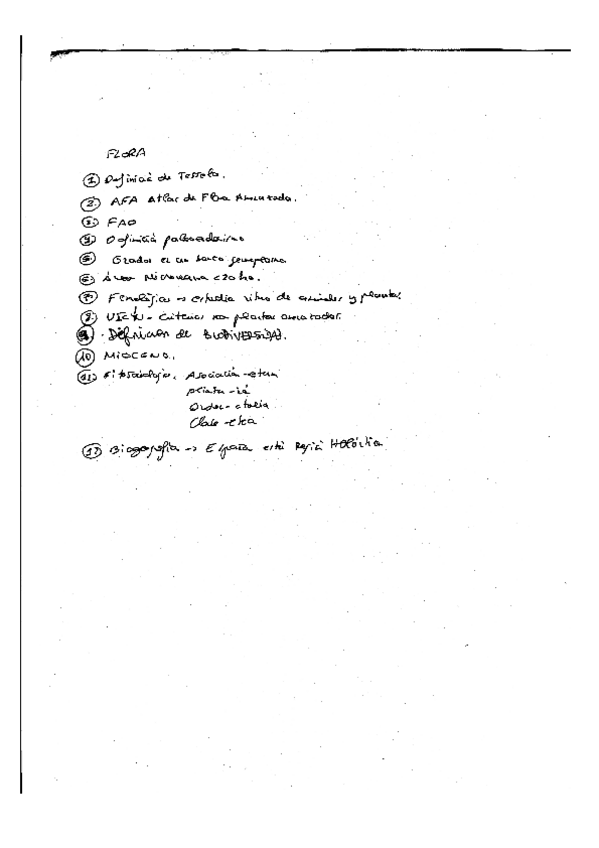 FLORA
1. Definició de Tessela.
2. AFA Atlas de Flora Amenazada.
3. FAO
4. Definición
5. Gradar es un banco germoplasma.
6. Área Microreserva < 20 ha.
7. Fenológica → estudia ritmo de animales y plantas.
8. UICN - Criterios plantas amenazadas.
9. Definición de BIODIVERSIDAD.
10 MIOCENO.
11. Fitosociología. Asociación - etum
Alianza - ió
Orden - etalia
Clase - etea
12 Biogeografía → España está Región Holártica